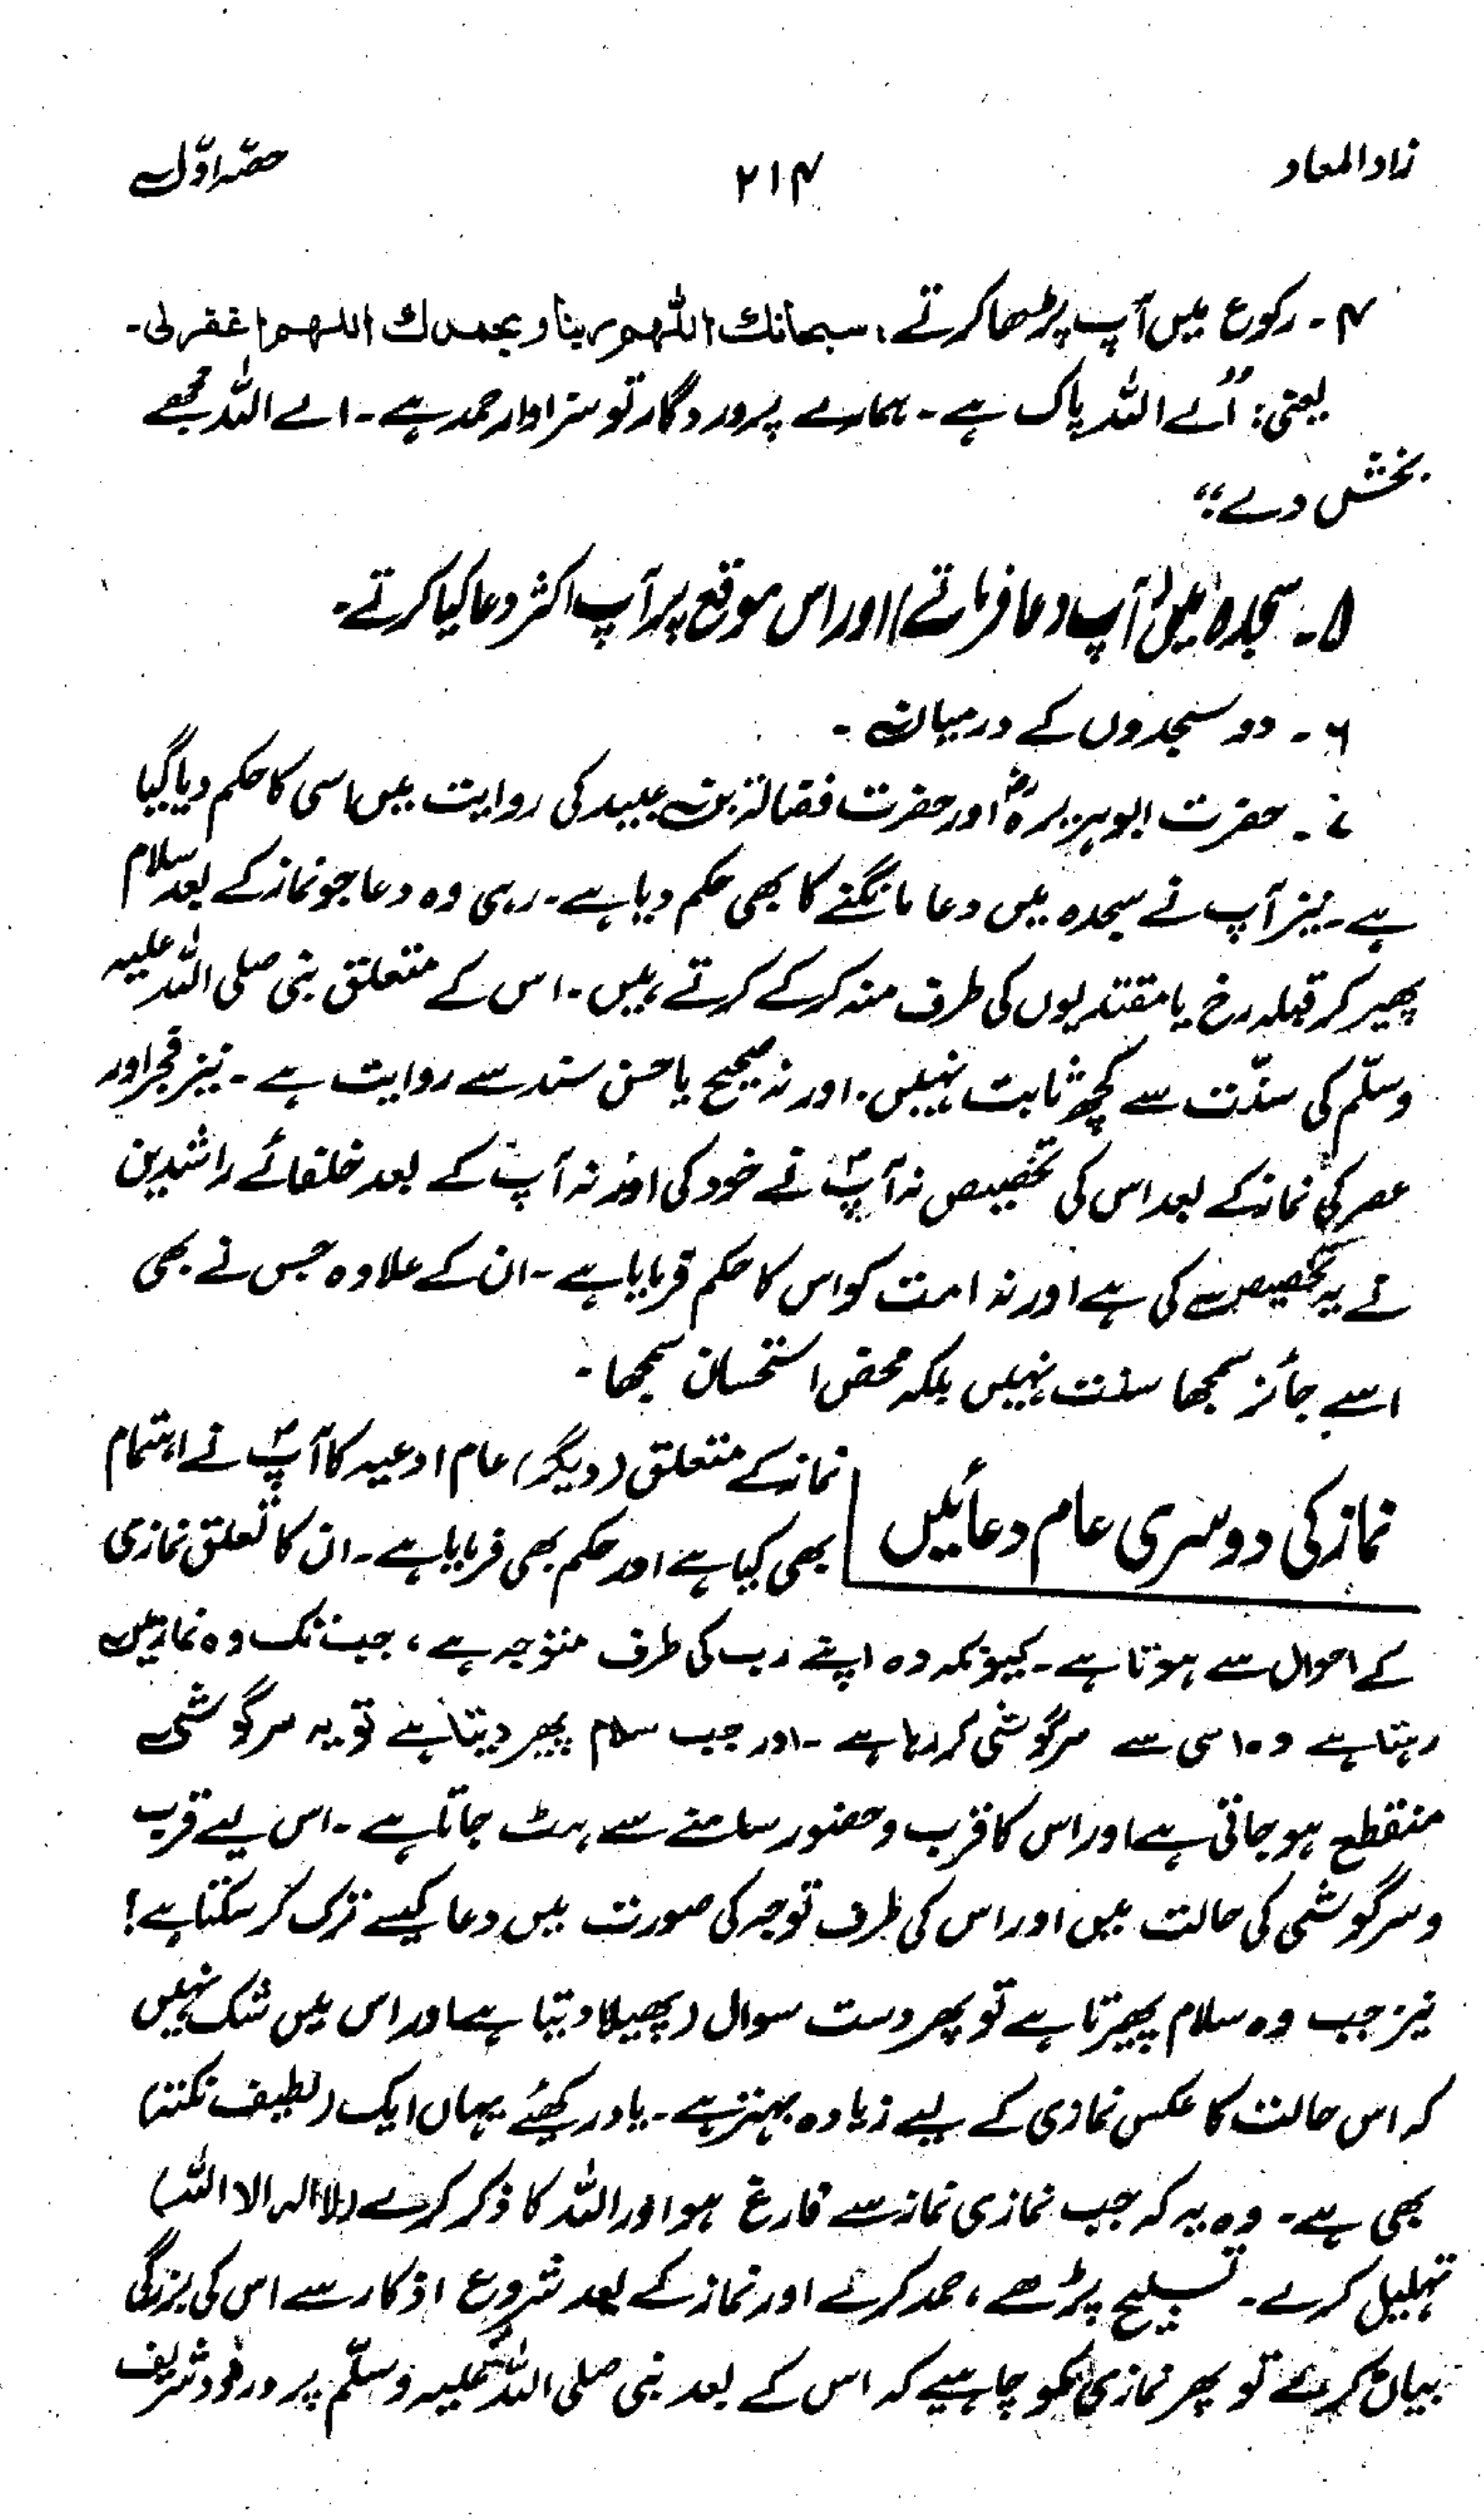 زاد المعاد ۲۱۴ حصّہ اوّل
۴ ۔ رکوع میں آپ پڑھا کرتے ، سبحانك اللّٰهم ربنا وبحمدك اللهم اغفرلى ۔
یعنی : "اے اللہ پاک ہے ۔ ہمارے پروردگار تو سزاوار حمد ہے ۔ اے اللہ مجھے
بخش دے ؛"
۵ ۔ سجدہ میں آپ دعا فرماتے) اور اس موقع پر آپ اکثر دعا کیا کرتے ۔
۶ ۔ دو سجدوں کے درمیان ۔
۷ ۔ حضرت ابوہریرہؓ اور حضرت فضالۃ بن عبید کی روایت میں اسی کا حکم دیا گیا
ہے ۔ نیز آپ نے سجدہ میں دعا مانگنے کا بھی حکم دیا ہے ۔ رہی وہ دعا جو نماز کے بعد سلام
پھیر کر قبلہ رخ یا مقتدیوں کی طرف منہ کر کے کرتے ہیں ۔ اس کے متعلق نبی صلی اللہ علیہ
وسلّم کی سنّت سے کچھ ثابت نہیں ۔ اور نہ صحیح یا حسن سند سے روایت ہے ۔ نیز فجر اور
عصر کی نماز کے بعد اس کی تخصیص نہ آپؐ نے خود کی اور نہ آپ کے بعد خلفائے راشدین
نے یہ تخصیص کی ہے اور نہ امت کو اس کا حکم فرمایا ہے ۔ ان کے علاوہ جس نے بھی
اسے جائز سمجھا سنت نہیں بلکہ محض استحسان سمجھا ۔
نماز کی دوسری عام دعائیں
نماز کے متعلق (دیگر) عام ادعیہ کا آپؐ نے اہتمام
بھی کیا ہے اور حکم بھی فرمایا ہے ۔ ان کا تعلق نمازی
کے احوال سے ہوتا ہے ۔ کیونکہ وہ اپنے رب کی طرف متوجہ ہے ، جب تک وہ نماز میں
رہتا ہے وہ اسی سے سرگوشی کر رہا ہے ۔ اور جب سلام پھیر دیتا ہے تو یہ سرگوشی
منقطع ہو جاتی ہے اور اس کا قرب و حضور سامنے سے ہٹ جاتا ہے ۔ اس لیے قرب
و سرگوشی کی حالت میں اور اس کی طرف توجہ کی صورت میں دعا کیسے ترک کر سکتا ہے !
نیز جب وہ سلام پھیرتا ہے تو پھر دست سوال (پھیلا دیتا ہے اور اس میں شک نہیں
کہ اس حالت کا عکس نمازی کے لیے زیادہ بہتر ہے ۔ یاد رکھیئے یہاں ایک (لطیف نکتہ)
بھی ہے ۔ وہ یہ کہ جب نمازی نماز سے فارغ ہو اور اللہ کا ذکر کرے (لا الہ الا اللہ)
تہلیل کرے ۔ تسبیح پڑھے ، حمد کرے اور نماز کے بعد مشروع اذکار سے اس کی بزرگی
بیان کرے تو پھر نمازی کو چاہیے کہ اس کے بعد نبی صلی اللہ علیہ وسلّم پر درود شریف